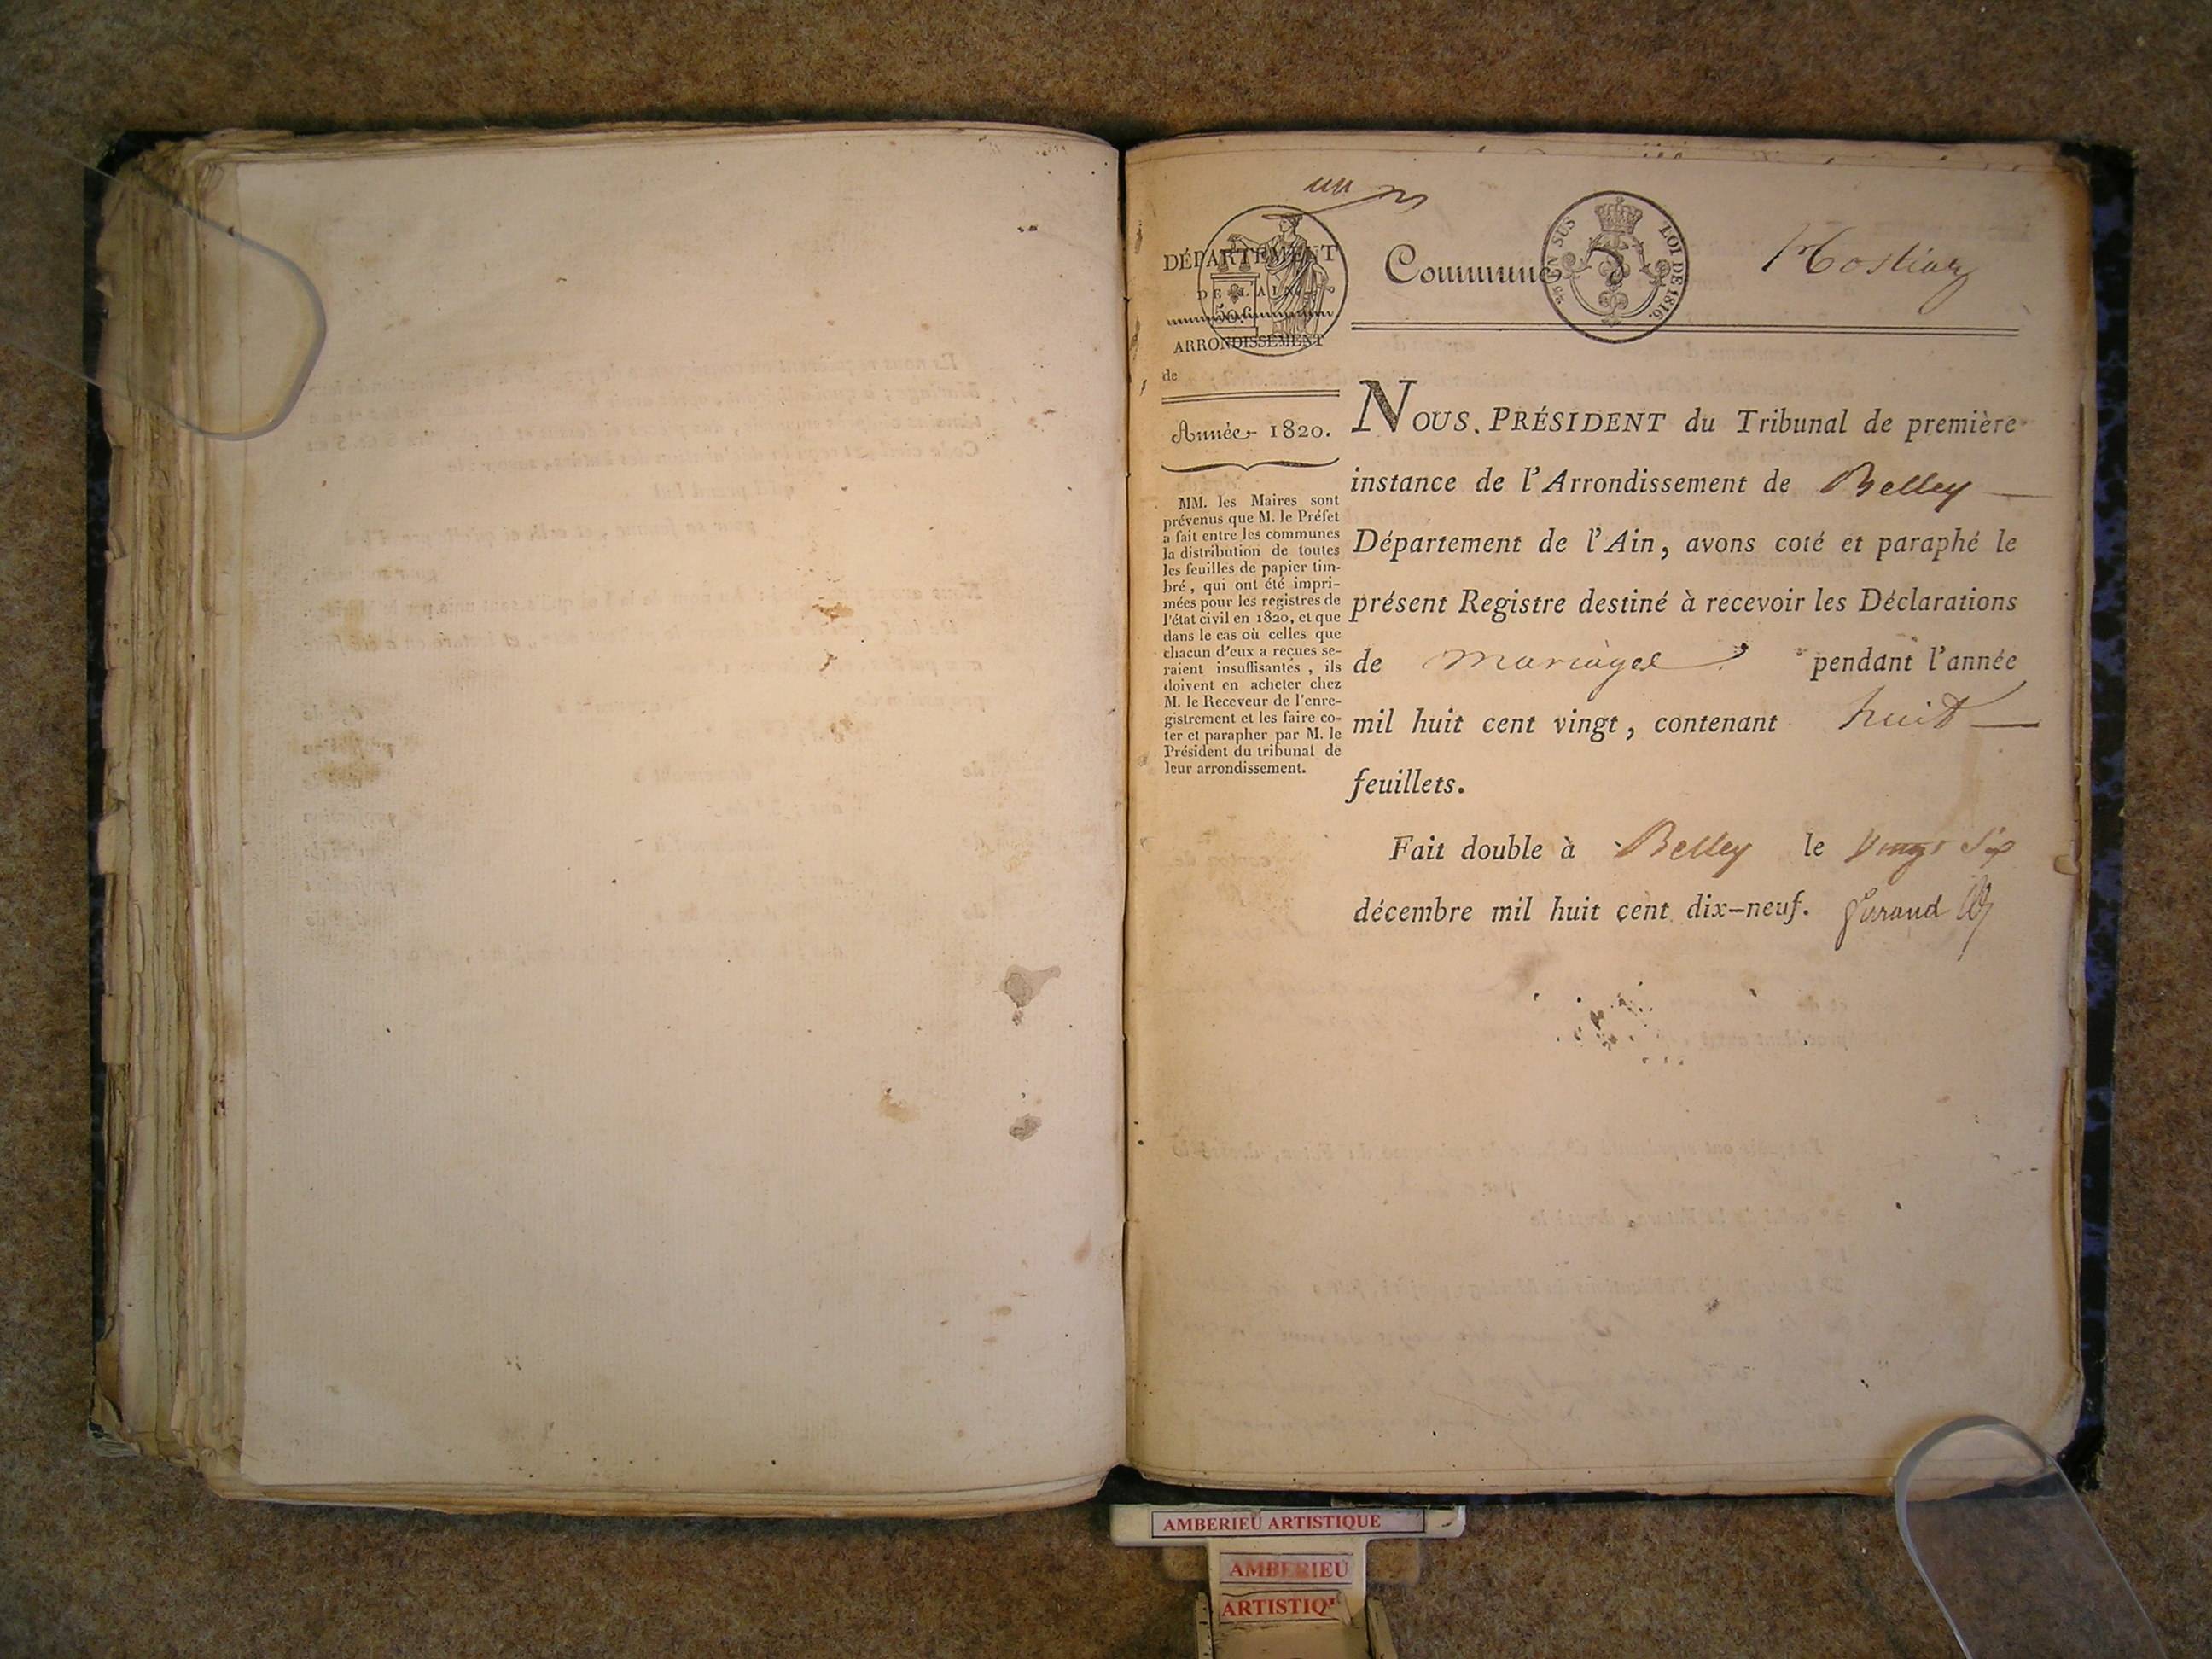 un
DÉPARTEMENT
DE L'AIN.
50.c
ARRONDISSEMENT
de
Année 1820.
MM. les Maires sont
prévenus que M. le Préfet
a fait entre les communes
la distribution de toutes
les feuilles de papier tim-
bré, qui ont été impri-
mées pour les registres de
l'état civil en 1820, et que
dans le cas où celles que
chacun d'eux a reçues se-
raient insuffisantes, ils
doivent en acheter chez
M. le Receveur de l'enre-
gistrement et les faire co-
ter et parapher par M. le
Président du tribunal de
leur arrondissement.
Commune
EN SUS LOI DE 1816.
NOUS, PRÉSIDENT du Tribunal de première
instance de l'Arrondissement de Belley
Département de l'Ain, avons coté et paraphé le
présent Registre destiné à recevoir les Déclarations
de mariages pendant l'année
mil huit cent vingt, contenant huit
feuillets.
Fait double à Belley le vingt six
décembre mil huit cent dix-neuf.
AMBERIEU ARTISTIQUE
AMBERIEU
ARTISTIQ